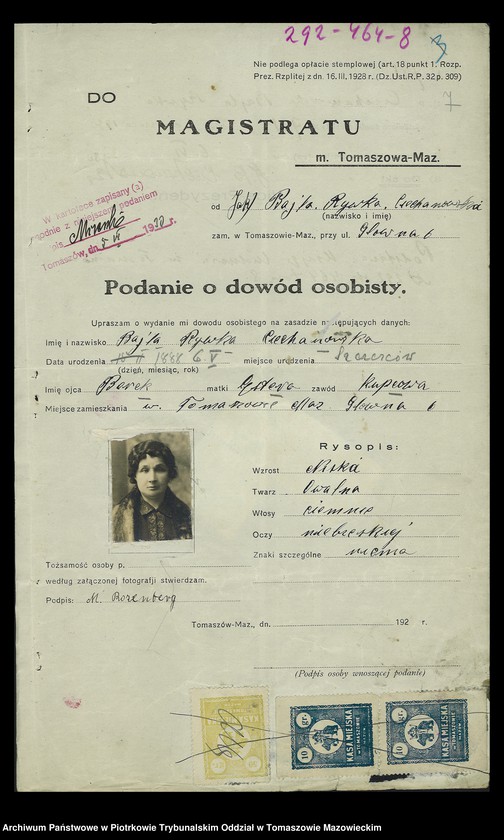 292-464-8
3
Nie podlega opłacie stemplowej (art. 18 punkt 1. Rozp.
Prez. Rzplitej z dn. 16. III. 1928 r. (Dz. Ust. R. P. 32 p. 309)
7
DO
MAGISTRATU
m. Tomaszowa-Maz.
W kartotece zapisany (a)
zgodnie z niniejszem podaniem
Tomaszów, dn. 5 VI 1930 r.
od Bajla. Rywka. Ciechanowska
(nazwisko i imię)
zam. w Tomaszowie-Maz., przy ul. Głowna 6
Podanie o dowód osobisty.
Upraszam o wydanie mi dowodu osobistego na zasadzie następujących danych:
Imię i nazwisko Bajla Rywka Ciechanowska
Data urodzenia 1888 6 V miejsce urodzenia Szczerców
(dzień, miesiąc, rok)
Imię ojca Berek matki zawód Kupcowa
Miejsce zamieszkania w. Tomaszowie Maz Głowna 6
Rysopis:
Wzrost Niska
Twarz Owalna
Włosy ciemne
Oczy niebieskiej
Znaki szczególne niema
Tożsamość osoby p.
według załączonej fotografji stwierdzam.
Podpis: M. Rozenberg
Tomaszów-Maz., dn. 192 r.
(Podpis osoby wnoszącej podanie)
10 gr.
KASA MIEJSKA
W TOMASZOWIE
10 gr.
KASA MIEJSKA
W TOMASZOWIE
Archiwum Państwowe w Piotrkowie Trybunalskim Oddział w Tomaszowie Mazowieckim